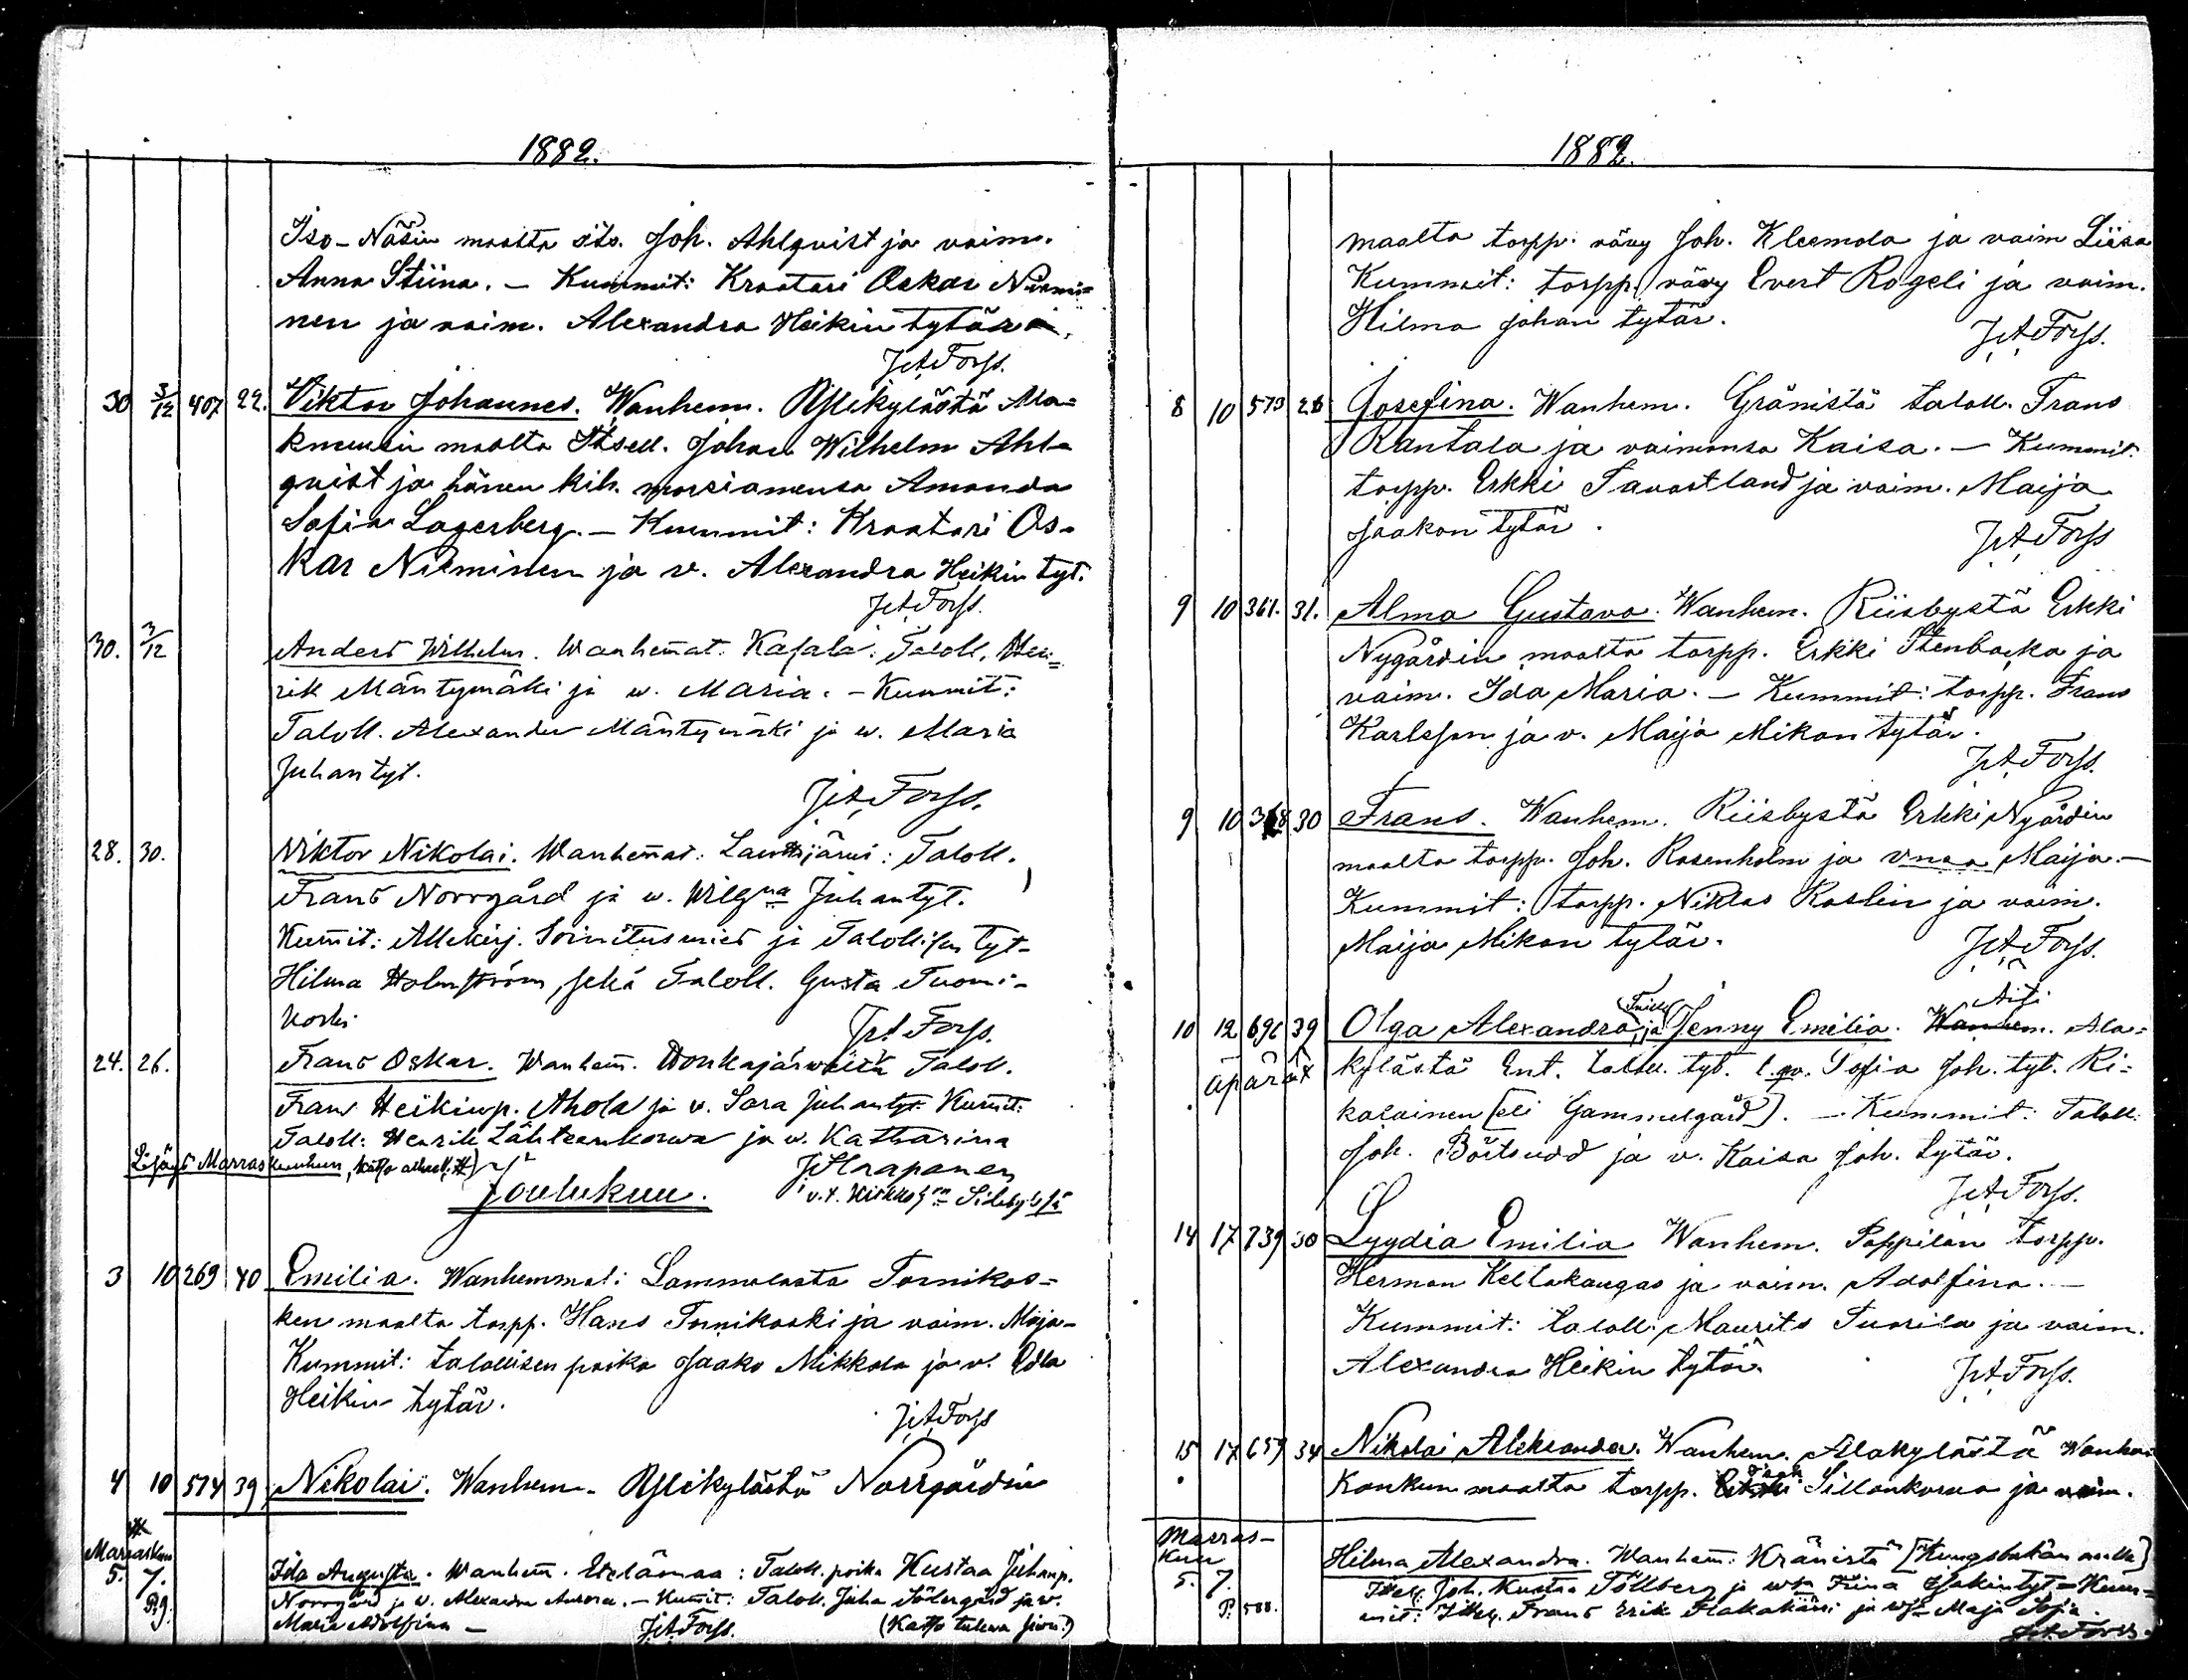 1882.
Iso-Näsin maalta its. Joh. Ahlqvist ja vaim.
Anna Stiina. — Kummit: Kraatari Oskar Niemi=
nen ja vaim. Alexandra Heikin tytär
JAForss.
30 3/12 407 22. Viktor Johannes. Wanhem. Ylikylästä Ala=
maalta Itsell. Johan Wilhelm Ahl=
qvist ja hänen kih. morsiamensa Amanda
Sofia Lagerberg. — Kummit: Kraatari Os=
kar Nieminen ja v. Alexandra Heikin tyt.
JAForss.
30. 3/12 Anders Wilhelm. Wanhemat: Kasala: Taloll. Hen=
rik Mäntymäki ja w. Maria. — Kummit:
Taloll. Alexander Mäntymäki ja w. Maria
Juhan tyt.
JAForss.
28. 30. Viktor Nikolai. Wanhemat: Lauttijärvi: Taloll.
Frans Norrgård ja w. Juhantyt.
Kumit: Allekirj. Toimitusmies ja Talollisen tyt.
Hilma Holmström, sekä Taloll. Gusta Tuomi-
koski
JAForss.
24. 26. Frans Oskar. Wanhem. Honkajärweltä Talol.
Frans Heikinp. Ahola ja v. Sara Juhantyt. Kumit:
Taloll: Henrik Lähteenkorwa ja w. Katharina
Lisäys Marraskuuhun, katso alhaall. #)
JHaapanen
v.t. Kirkkoh. Sidebyssä
Joulukuu.
3 10 269 40 Emilia. Wanhemmat: Lammelasta Tornikos=
ken maalta torpp. Hans Tornikoski ja vaim. Maja-
Kummit: talollisen poika Jaako Mikkola ja v. Edla
Heikin tytär.
JAForss
4 10 574 39 Nikolai. Wanhem. Ylikylästä Norrgårdin
#
Marraskuu
5. 7. Ida Augusta. Wanhem. Etelämaa: Taloll. poika Kustaa Juhanp.
P. 9. Norrgård ja w. Alexandra Aurora. — Kumit: Taloll. Juha Södergård ja w.
Maria Adolfina — JAForss. (Katso tulewa sivu!)
1882.
maalta torpp. vävy Joh. Kleemola ja vaim Liisa
Kummit: torpp. vävy Evert Rogeli ja vaim.
Hilma Johan tytär.
JAForss.
8 10 573 28 Josefina. Wanhem. Gränistä taloll. Frans
Rantala ja vaimonsa Kaisa. — Kummit.
torpp. Erkki Tavastland ja vaim. Maija
Jaakon tytär.
JAForss
9 10 361. 31. Alma Gustava. Wanhem. Riisbystä Erkki
Nygårdin maalta torpp. Erkki Stenbacka ja
vaim. Ida Maria. — Kummit: torpp. Frans
Karlsson ja v. Maija Mikon tytär.
JAForss.
9 10 368 30 Frans. Wanhem. Riisbystä Erkki Nygårdin
maalta torpp. Joh. Rosenholm ja vnsa Maija. —
Kummit: torpp. Niklas Roslin ja vaim.
Maija Mikon tytär.
JAForss.
10 12 696 39 Olga Alexandra ja Jenny Emilia. Äiti Ala=
äpärät kylästä Ent. tallu. tyt. l. Sofia Joh. tyt. Ri=
kalainen [eli Gammelgård]. — Kummit: Taloll.
Joh. Böitsudd ja v. Kaisa Joh. tytär.
JAForss.
14 17 739 30 Lyydia Emilia Wanhem. Pappilan torpp.
Herman Keltakangas ja vaim. Adolfina. —
Kummit: taloll. Maurits Tuorila ja vaim.
Alexandra Heikin tytär.
JAForss.
15 17 659 34 Nikolai Aleksander. Wanhem. Alakylästä Wanhan
Konkun maalta torpp. Sillankorva ja vaim.
Marras-
kuu
5. 7. Hilma Alexandra. Wanhem: Kränistä [Kungsbakan maalla]
P. 588. Itsell. Joh. Kustaa Töllberg ja Fiina Isakintyt = Kum-
mit: Itsell. Frans Erik Flakakärri ja Maja Sofia
JAForss.